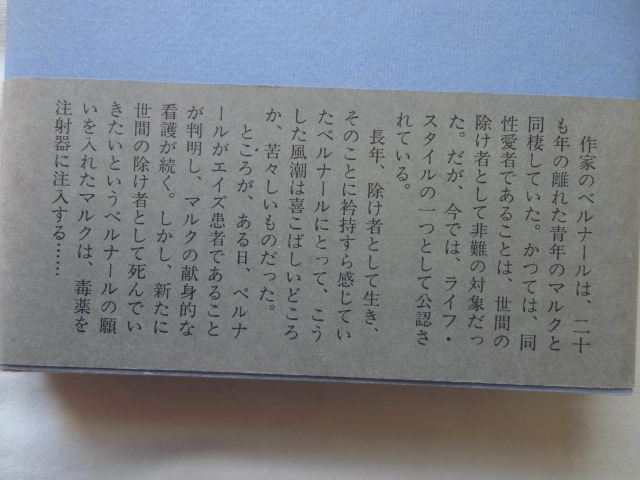 作家のベルナールは、二十
も年の離れた青年のマルクと
同棲していた。かつては、同
性愛者であることは、世間の
除け者として非難の対象だっ
た。だが、今では、ライフ・
スタイルの一つとして公認さ
れている。
長年、除け者として生き、
そのことに衿持すら感じてい
たベルナールにとって、こう
した風潮は喜こばしいどころ
か、苦々しいものだった。
ところが、ある日、ベルナ
ールがエイズ患者であること
が判明し、マルクの献身的な
看護が続く。しかし、新たに
世間の除け者として死んでい
きたいというベルナールの願
いを入れたマルクは、毒薬を
注射器に注入する……